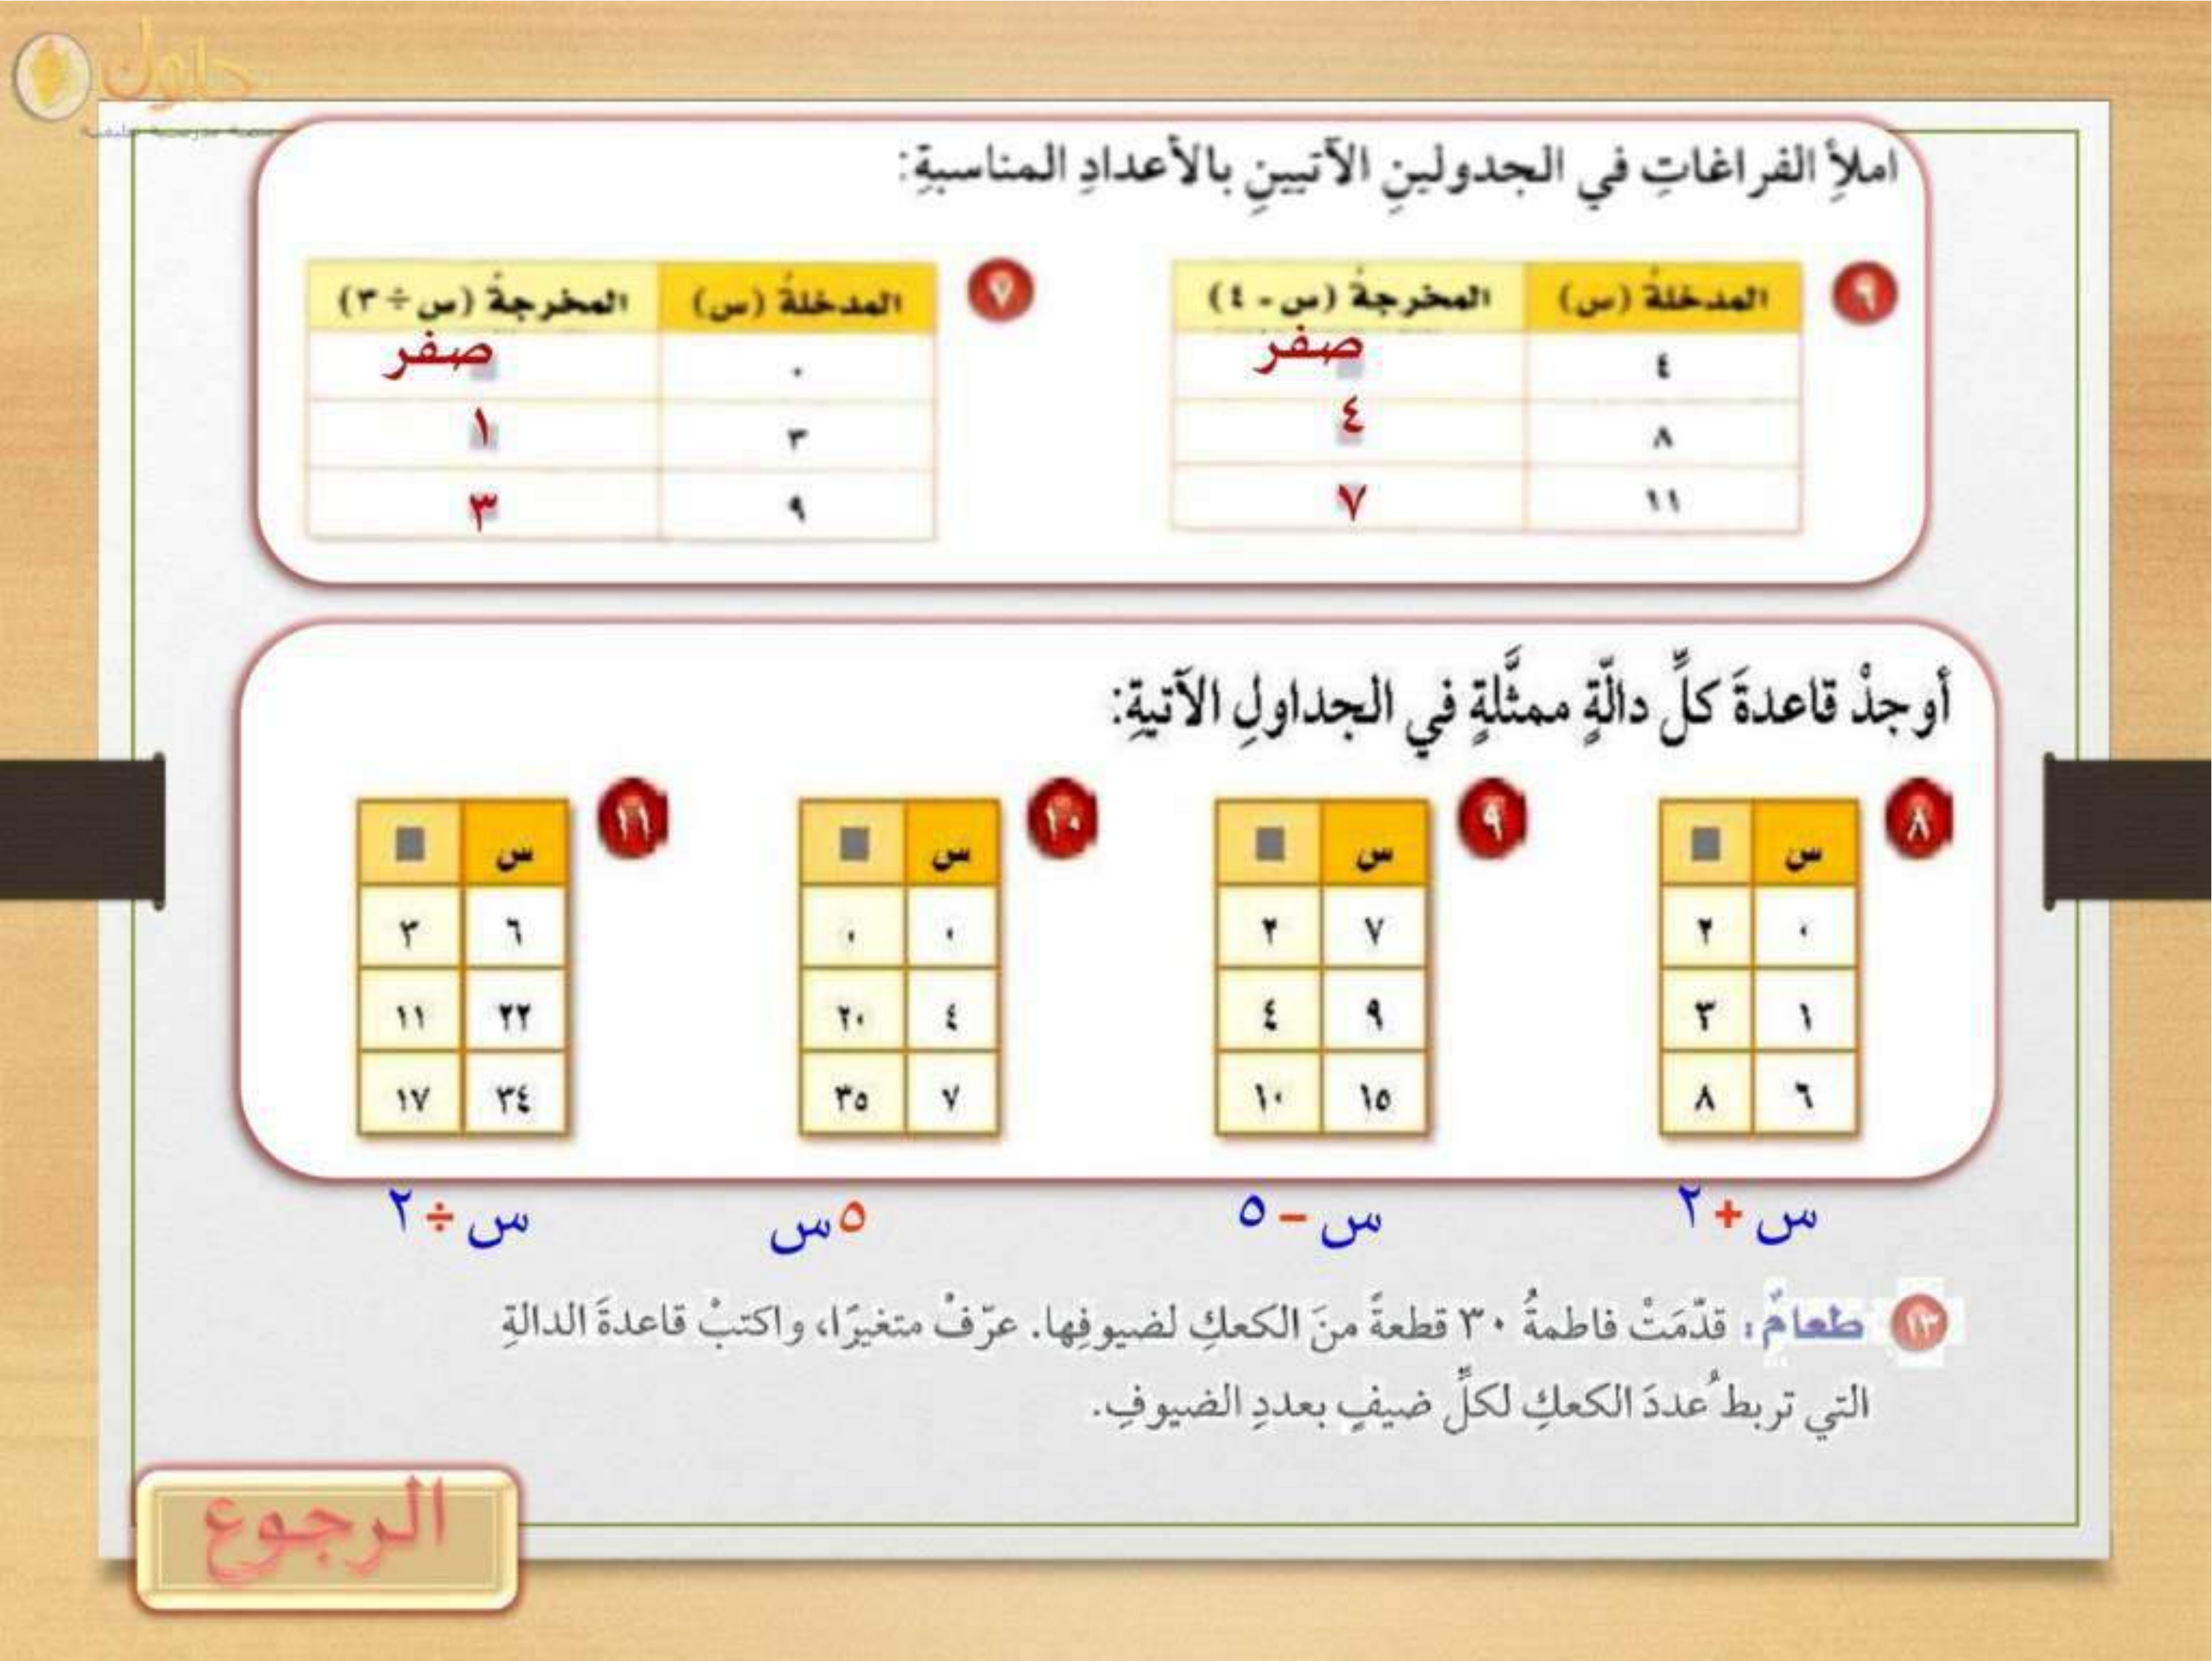 حلول
املأِ الفراغاتِ في الجدولينِ الآتيينِ بالأعدادِ المناسبةِ:
٦
المدخلةُ (س) المخرجةُ (س - ٤)
٤ صفر
٨ ٤
١١ ٧
٧
المدخلةُ (س) المخرجةُ (س ÷ ٣)
٠ صفر
٣ ١
٩ ٣
أوجدْ قاعدةَ كلِّ دالّةٍ ممثَّلةٍ في الجداولِ الآتيةِ:
٨
س
٠ ٢
١ ٣
٦ ٨
س + ٢
٩
س
٧ ٢
٩ ٤
١٥ ١٠
س – ٥
١٠
س
٠ ٠
٤ ٢٠
٧ ٣٥
٥س
١١
س
٦ ٣
٢٢ ١١
٣٤ ١٧
س ÷ ٢
١٣ طعامٌ: قدّمَتْ فاطمةُ ٣٠ قطعةً منَ الكعكِ لضيوفِها. عرّفْ متغيرًا، واكتبْ قاعدةَ الدالةِ
التي تربطُ عددَ الكعكِ لكلِّ ضيفٍ بعددِ الضيوفِ.
الرجوع